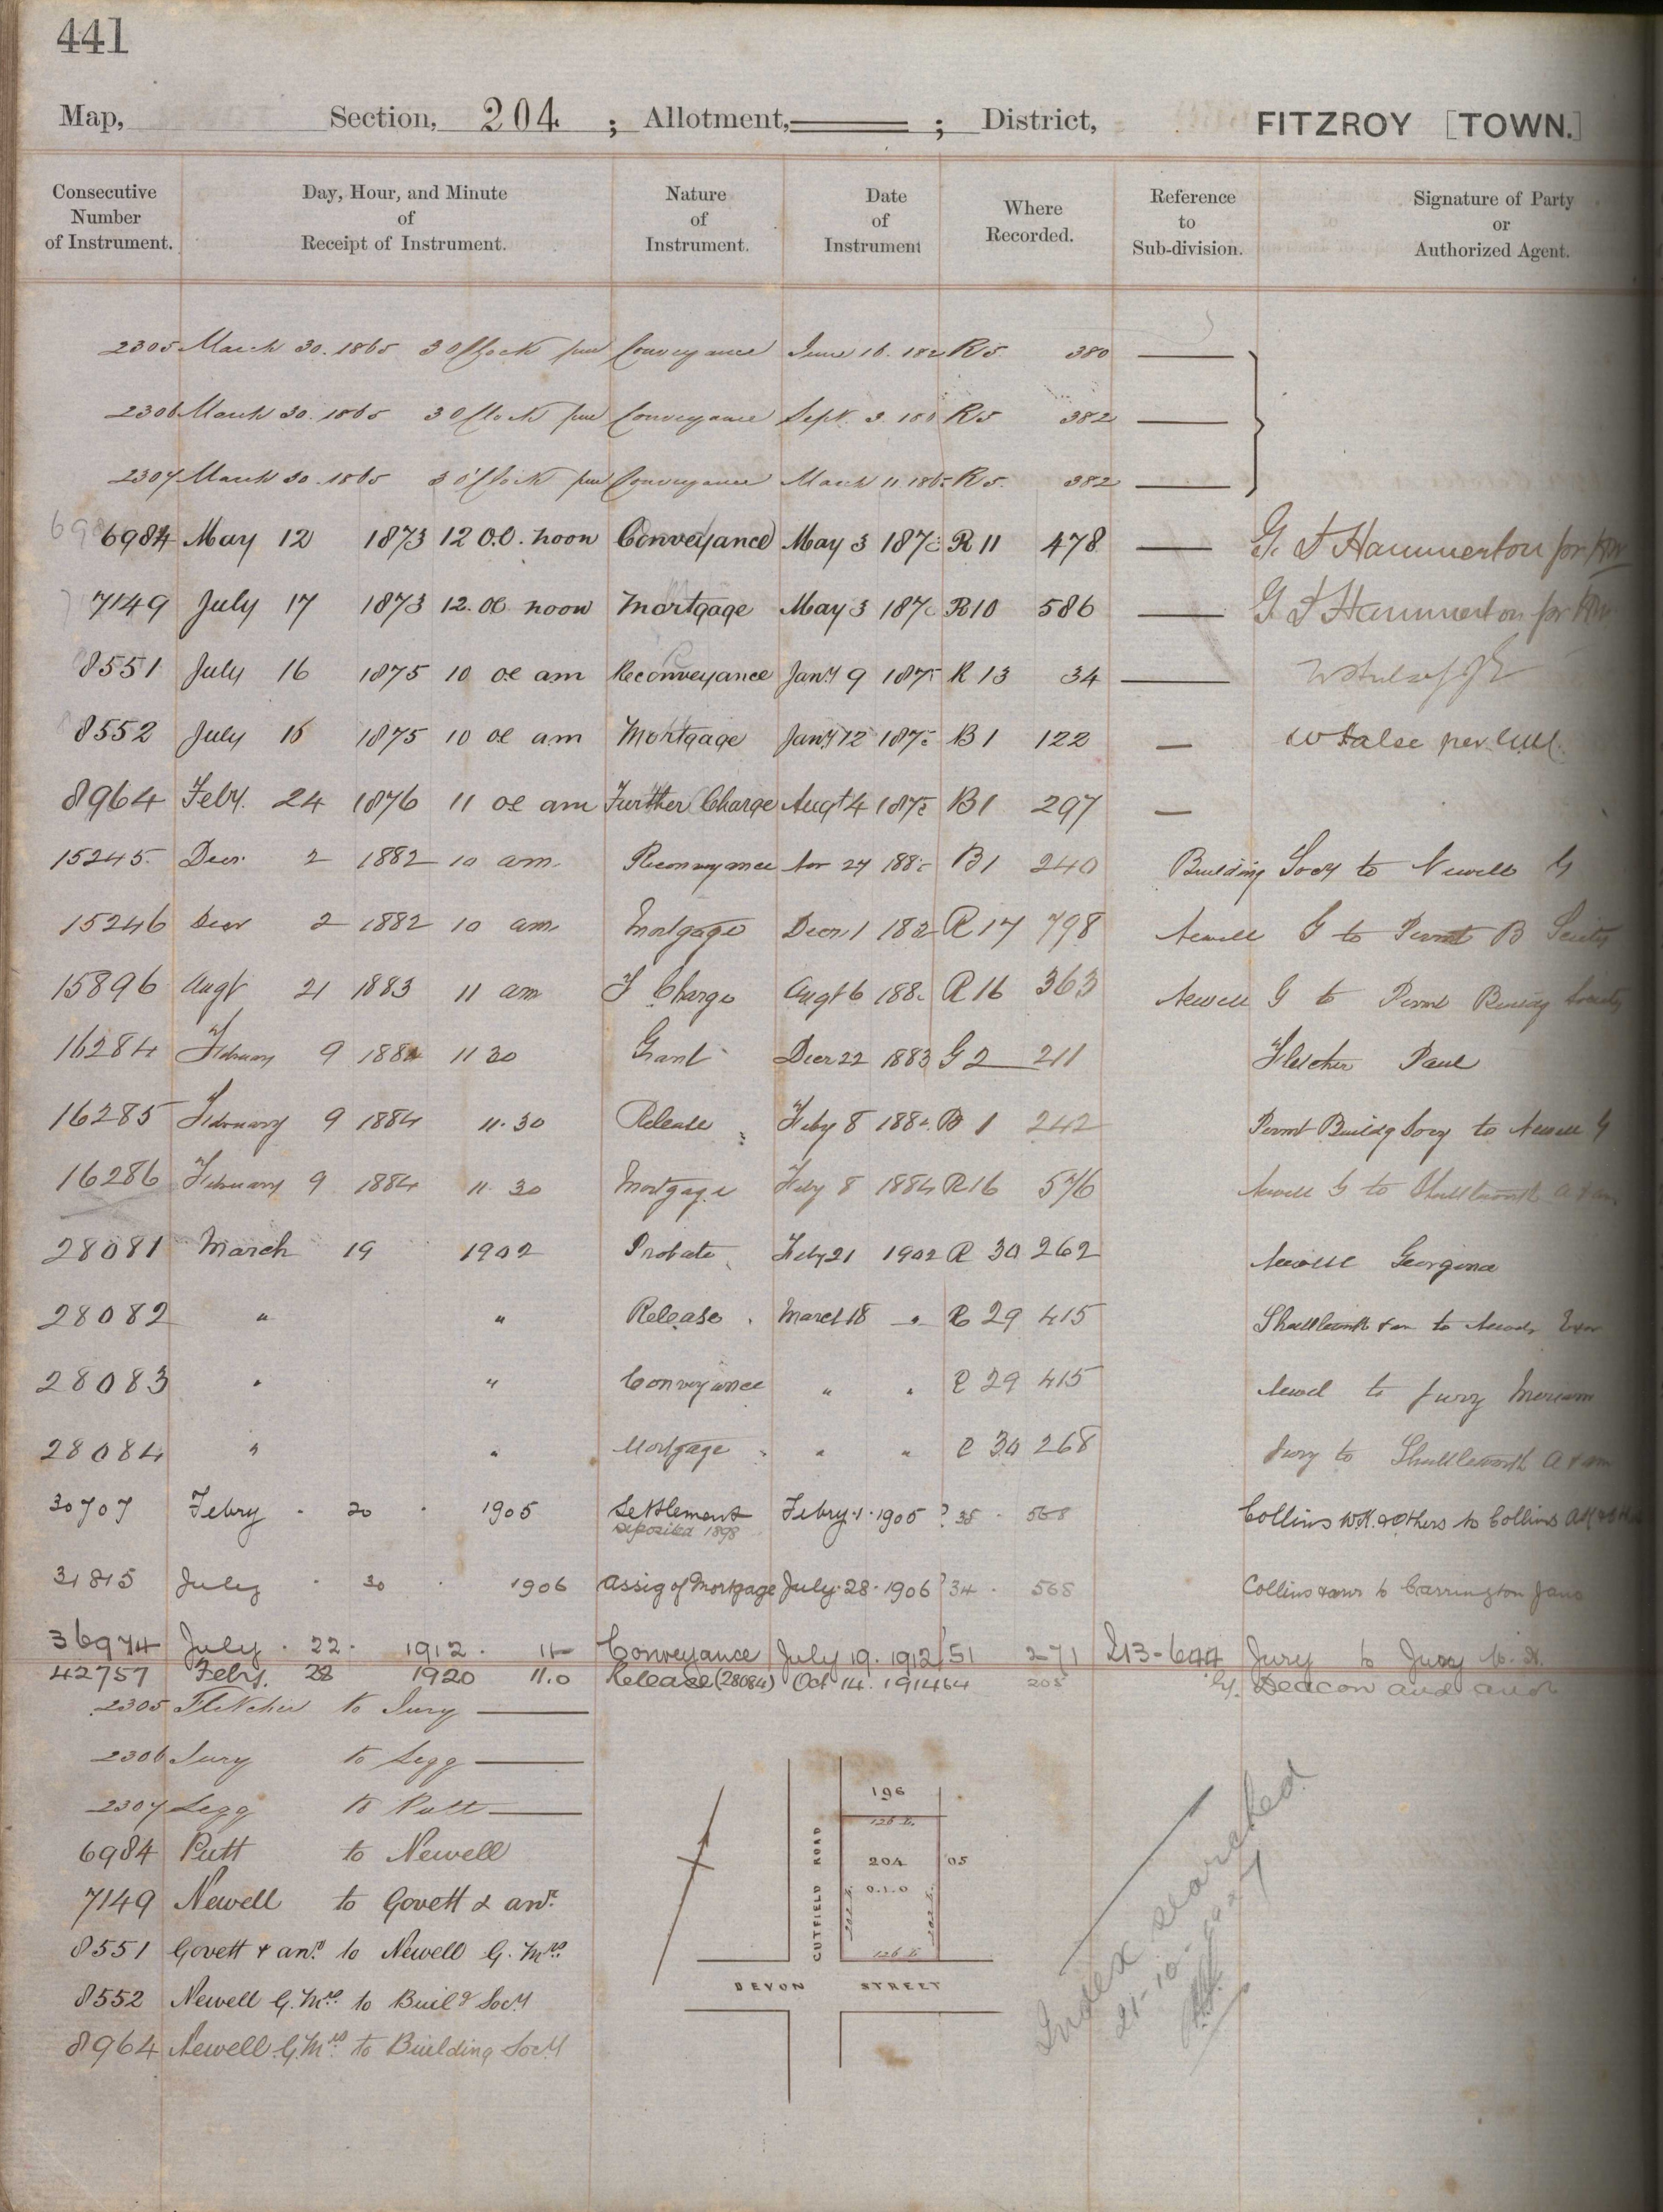 441
Map, Section, 204 ; Allotment, ; District, FITZROY [TOWN.]
Consecutive Number of Instrument. Day, Hour, and Minute of Receipt of Instrument. Nature of Instrument. Date of Instrument Where Recorded. Reference to Sub-division. Signature of Party or Authorized Agent.
2305 March 30. 1865 3 O'Clock pm Conveyance June 16. R5 380
2306 March 30. 1865 3 O'Clock pm Conveyance Sept. 3. R5 382
2307 March 30. 1865 3 O'Clock pm Conveyance March 11 R5. 382
6984 May 12 1873 12 O.C. noon Conveyance May 3 R 11 478 G. F Hammerton for
7149 July 17 1873 12. OC noon Mortgage May 3 R10 586 G F Hammerton for
8551 July 16 1875 10 oc am Reconveyance Jany 9 R 13 34
8552 July 15 1875 10 oc am Mortgage Jany 12 B 1 122 W Halse per
8964 Feby. 24 1876 11 oc am Further Charge Augt 4 B1 297
15245. Decr. 2 1882 10 am. Reconveyance Nov 27 B1 240 Building Socy to Newell G
15246 Decr 2 1882 10 am Mortgage Decr 1 R 17 798 Newell G to Permt B Society
15896 Augt 21 1883 11 am F Charge Augt 6 R 16 363 Newell G to Permt Building Society
16284 February 9 1884 11 30 Grant Decr 22 1883 G 2 211 Fletcher Paul
16285 February 9 1884 11.30 Release Feby 8 B 1 242 Permt Buildg Socy to Newell G
16286 February 9 1884 11 30 Mortgage Feby 8 1884 R16 576 Newell G to Shuttleworth
28081 March 19 1902 Probate Feby 21 1902 R 30 262 Newell Georgina
28082 " " Release March 18 " R 29 415 Shuttleworth & an to Newell Exor
28083 " " Conveyance " " R 29 415 Newell to Jury
28084 " " Mortgage " " R 30 268 Jury to Shuttleworth A & an
30707 Febry . 20 . 1905 Settlement Febry . 1 . 1905 35 . 568 Collins W.H. & Others to Collins
deposited 1898
31815 July . 30 . 1906 Assig of Mortgage July . 28 . 1906 34 . 568 Collins & anr to Carrington Jane
36974 July . 22 . 1912 . 11 Conveyance July 19. 1912 51 271 213-644 Jury to Jury C. H.
42757 Feby. 28 1920 11.0 Release (28084) Oct 14. 1914 64 205 Deacon and anor
2305 Fletcher to Jury
2306 Jury to Legg
2307 Legg to Putt
6984 Putt to Newell
7149 Newell to Govett & anr.
8551 Govett & anr. to Newell G. Mrs.
8552 Newell G. Mrs. to Buildg Socy
8964 Newell G. Mrs. to Building Socy
196
126 L.
204
0.1.0
05
202 L.
202 L.
126 L.
CUTFIELD ROAD
DEVON STREET
Index searched
21-10-